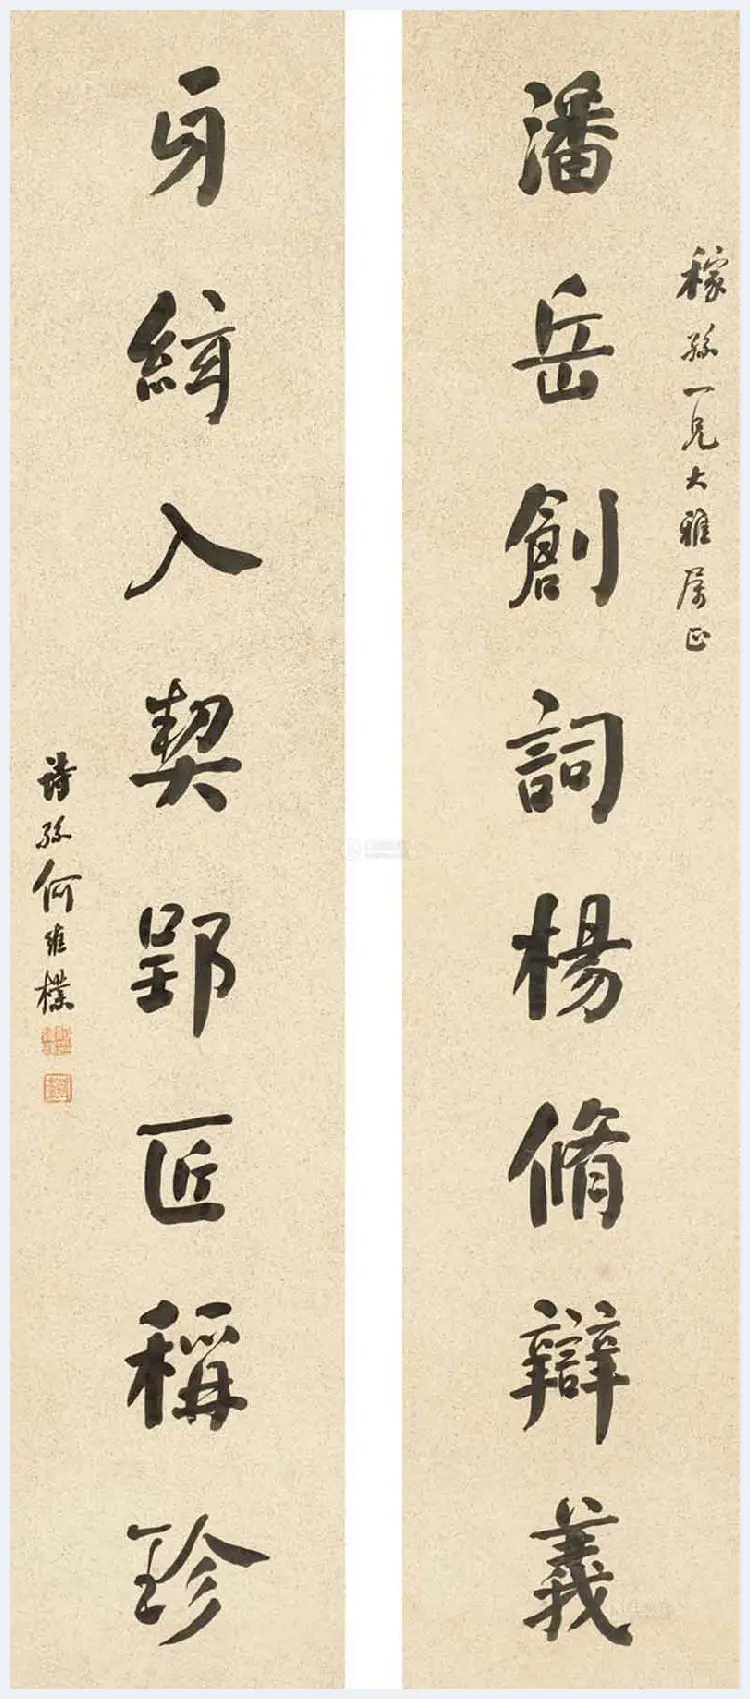 潘岳創詞楊脩辯義
稼孫一兄大雅属正
入契郢匠稱珍
詩孫何維樸